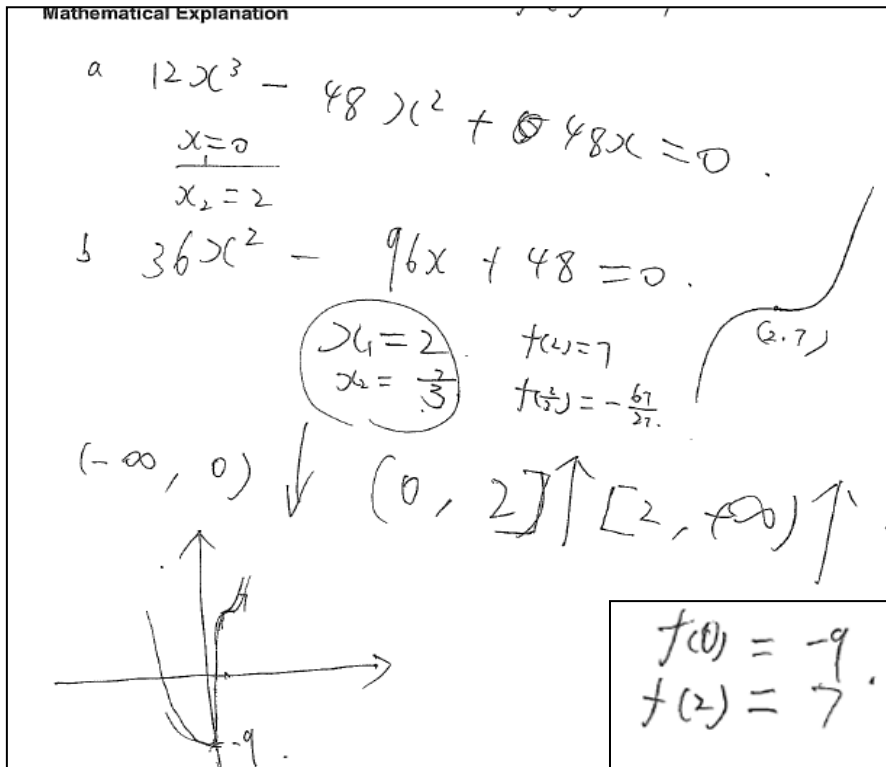 Mathematical Explanation
a 12x³ - 48x² + 48x = 0.
x₁=0
x₂ = 2
b 36x² - 96x + 48 = 0.
x₁ = 2
x₂ = 2/3
f(2) = 7
f(2/3) = - 67/27.
(2.7)
(-∞, 0) ↓ (0, 2] ↑ [2, +∞) ↑.
-9
f(0) = -9
f(2) = 7